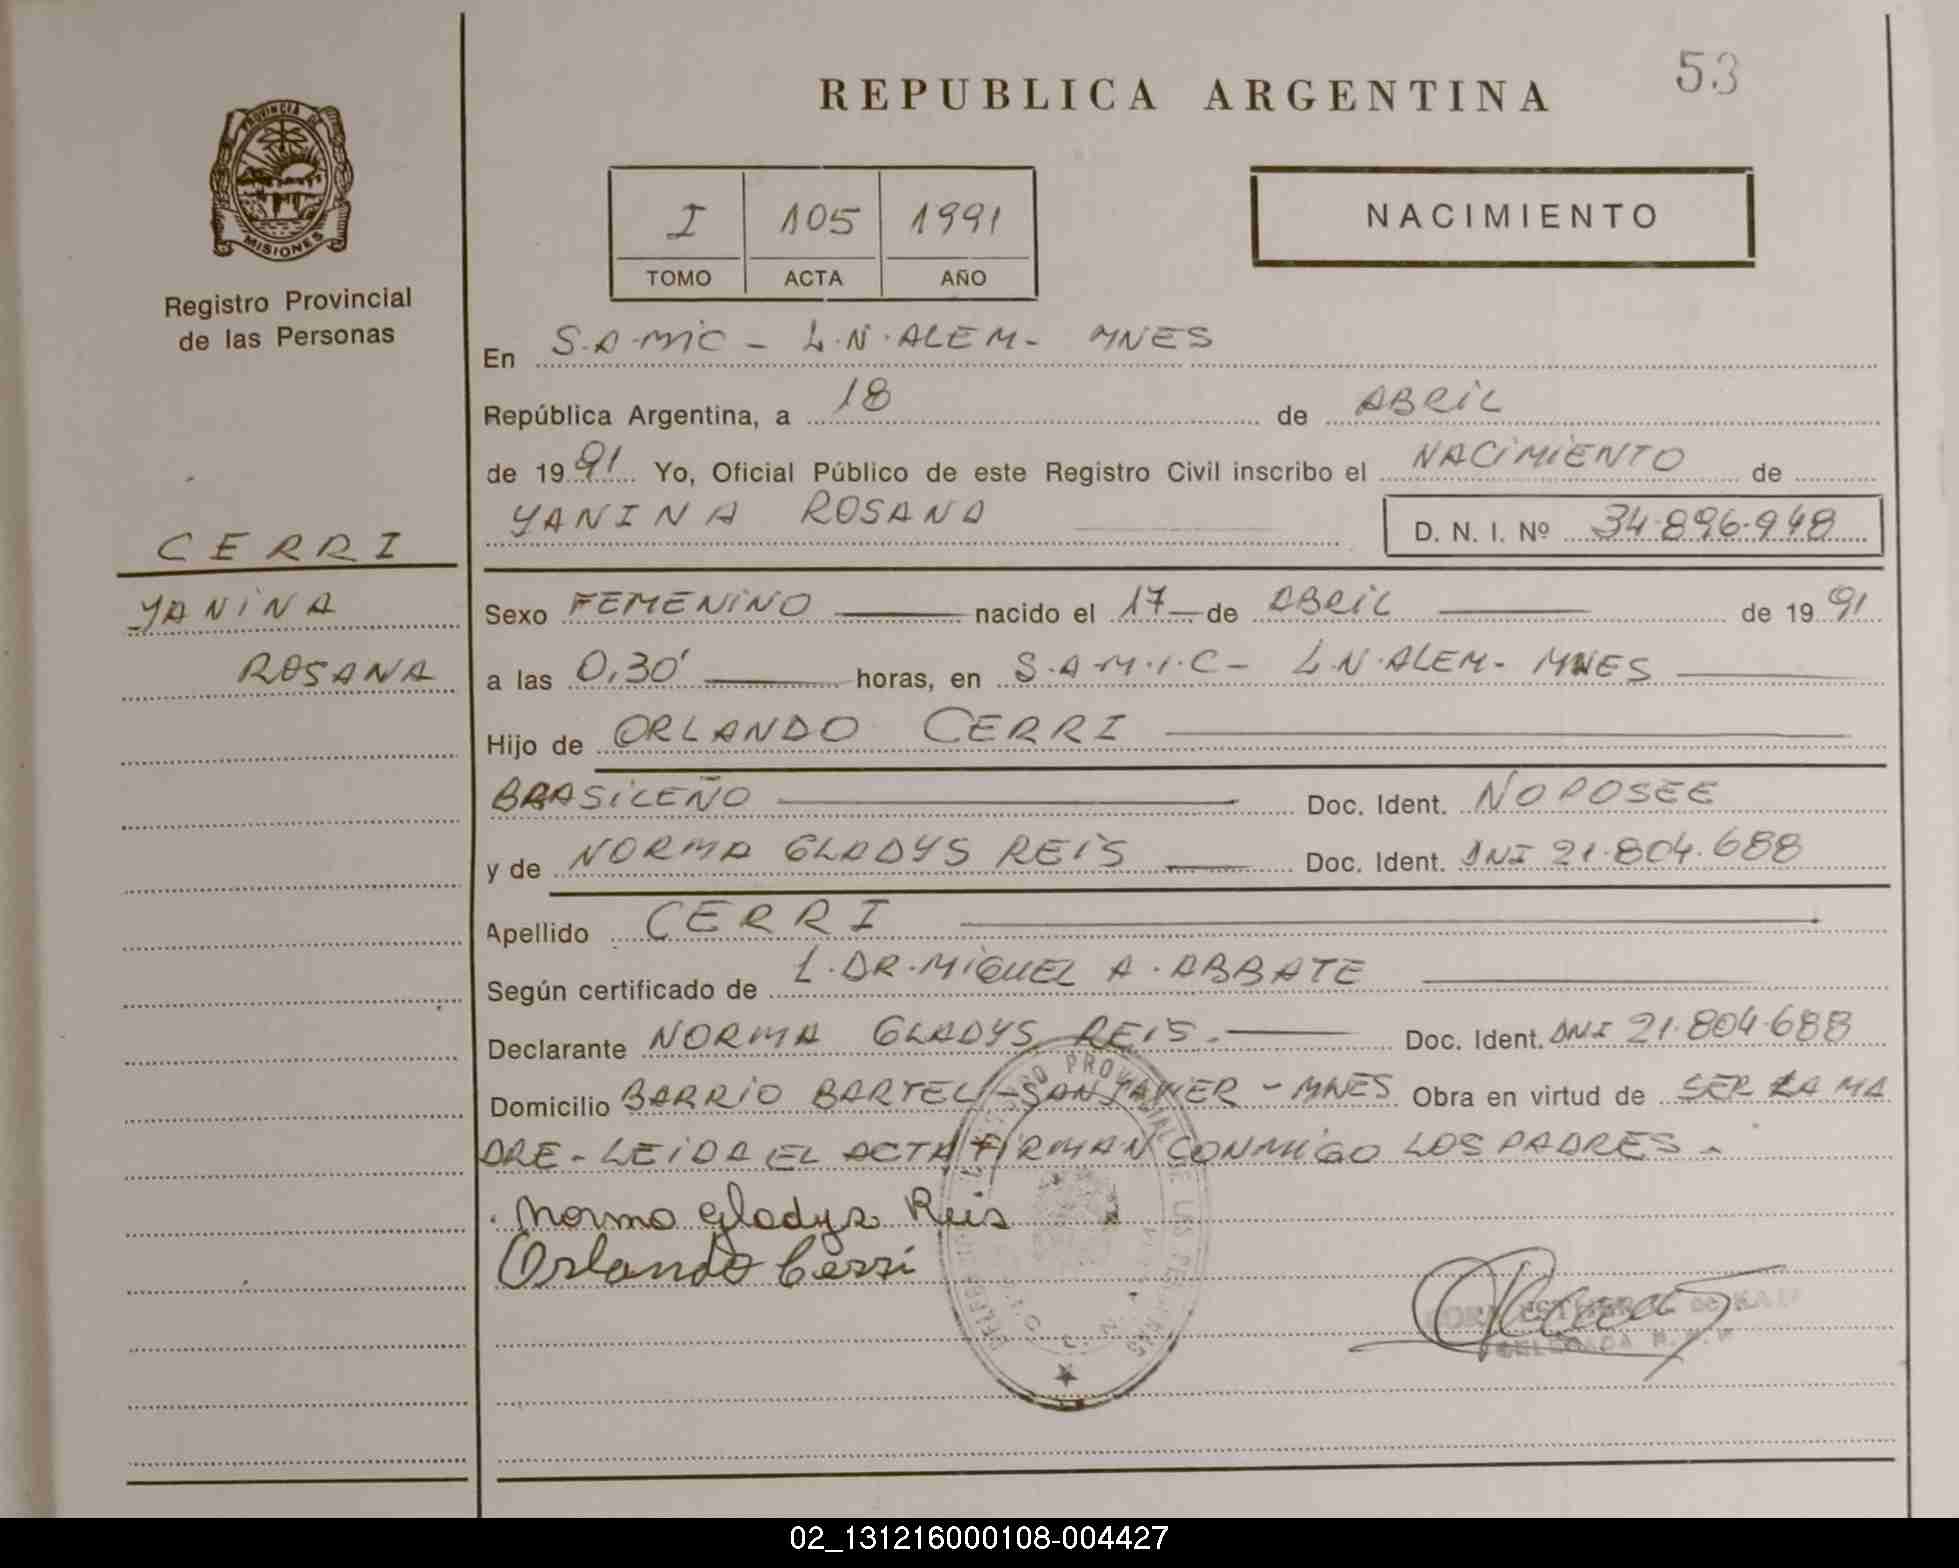 53
REPUBLICA ARGENTINA
PROVINCIA DE
MISIONES
Registro Provincial
de las Personas
I 105 1991
TOMO ACTA AÑO
NACIMIENTO
En S.A.MIC - L.N.ALEM - MNES
República Argentina, a 18 de ABRIL
de 1991 Yo, Oficial Público de este Registro Civil inscribo el NACIMIENTO de
YANINA ROSANA D. N. I. Nº 34.896.948
CERRI
YANINA
ROSANA
Sexo FEMENINO nacido el 17 de ABRIL de 1991
a las 0,30' horas, en S.A.M.I.C - L.N.ALEM - MNES
Hijo de ORLANDO CERRI
BRASILEÑO Doc. Ident. NO POSEE
y de NORMA GLADYS REIS Doc. Ident. DNI 21.804.688
Apellido CERRI
Según certificado de L. DR. MIGUEL A. ABBATE
Declarante NORMA GLADYS REIS. Doc. Ident. DNI 21.804.688
Domicilio BARRIO BARTEL - SAN JAVIER - MNES Obra en virtud de SER LA MA
DRE - LEIDA EL ACTA FIRMAN CONMIGO LOS PADRES.
Norma Gladys Reis
Orlando Cerri
02_131216000108-004427